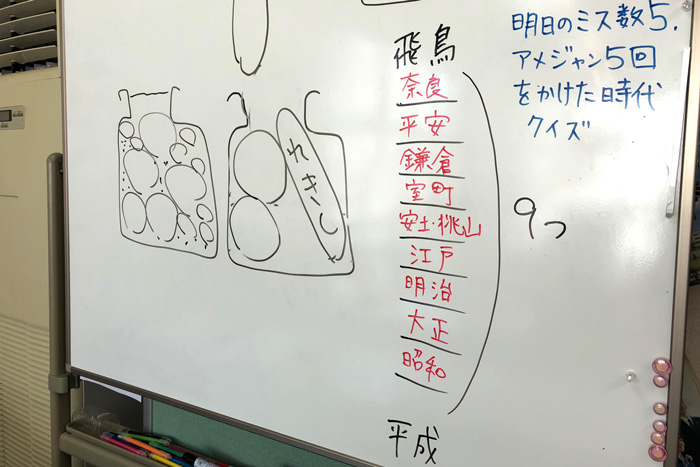 明日のミス数5.
アメジャン5回
をかけた時代
クイズ
飛鳥
奈良
平安
鎌倉
室町
安土・桃山
江戸
明治
大正
昭和
平成
9つ
れきし